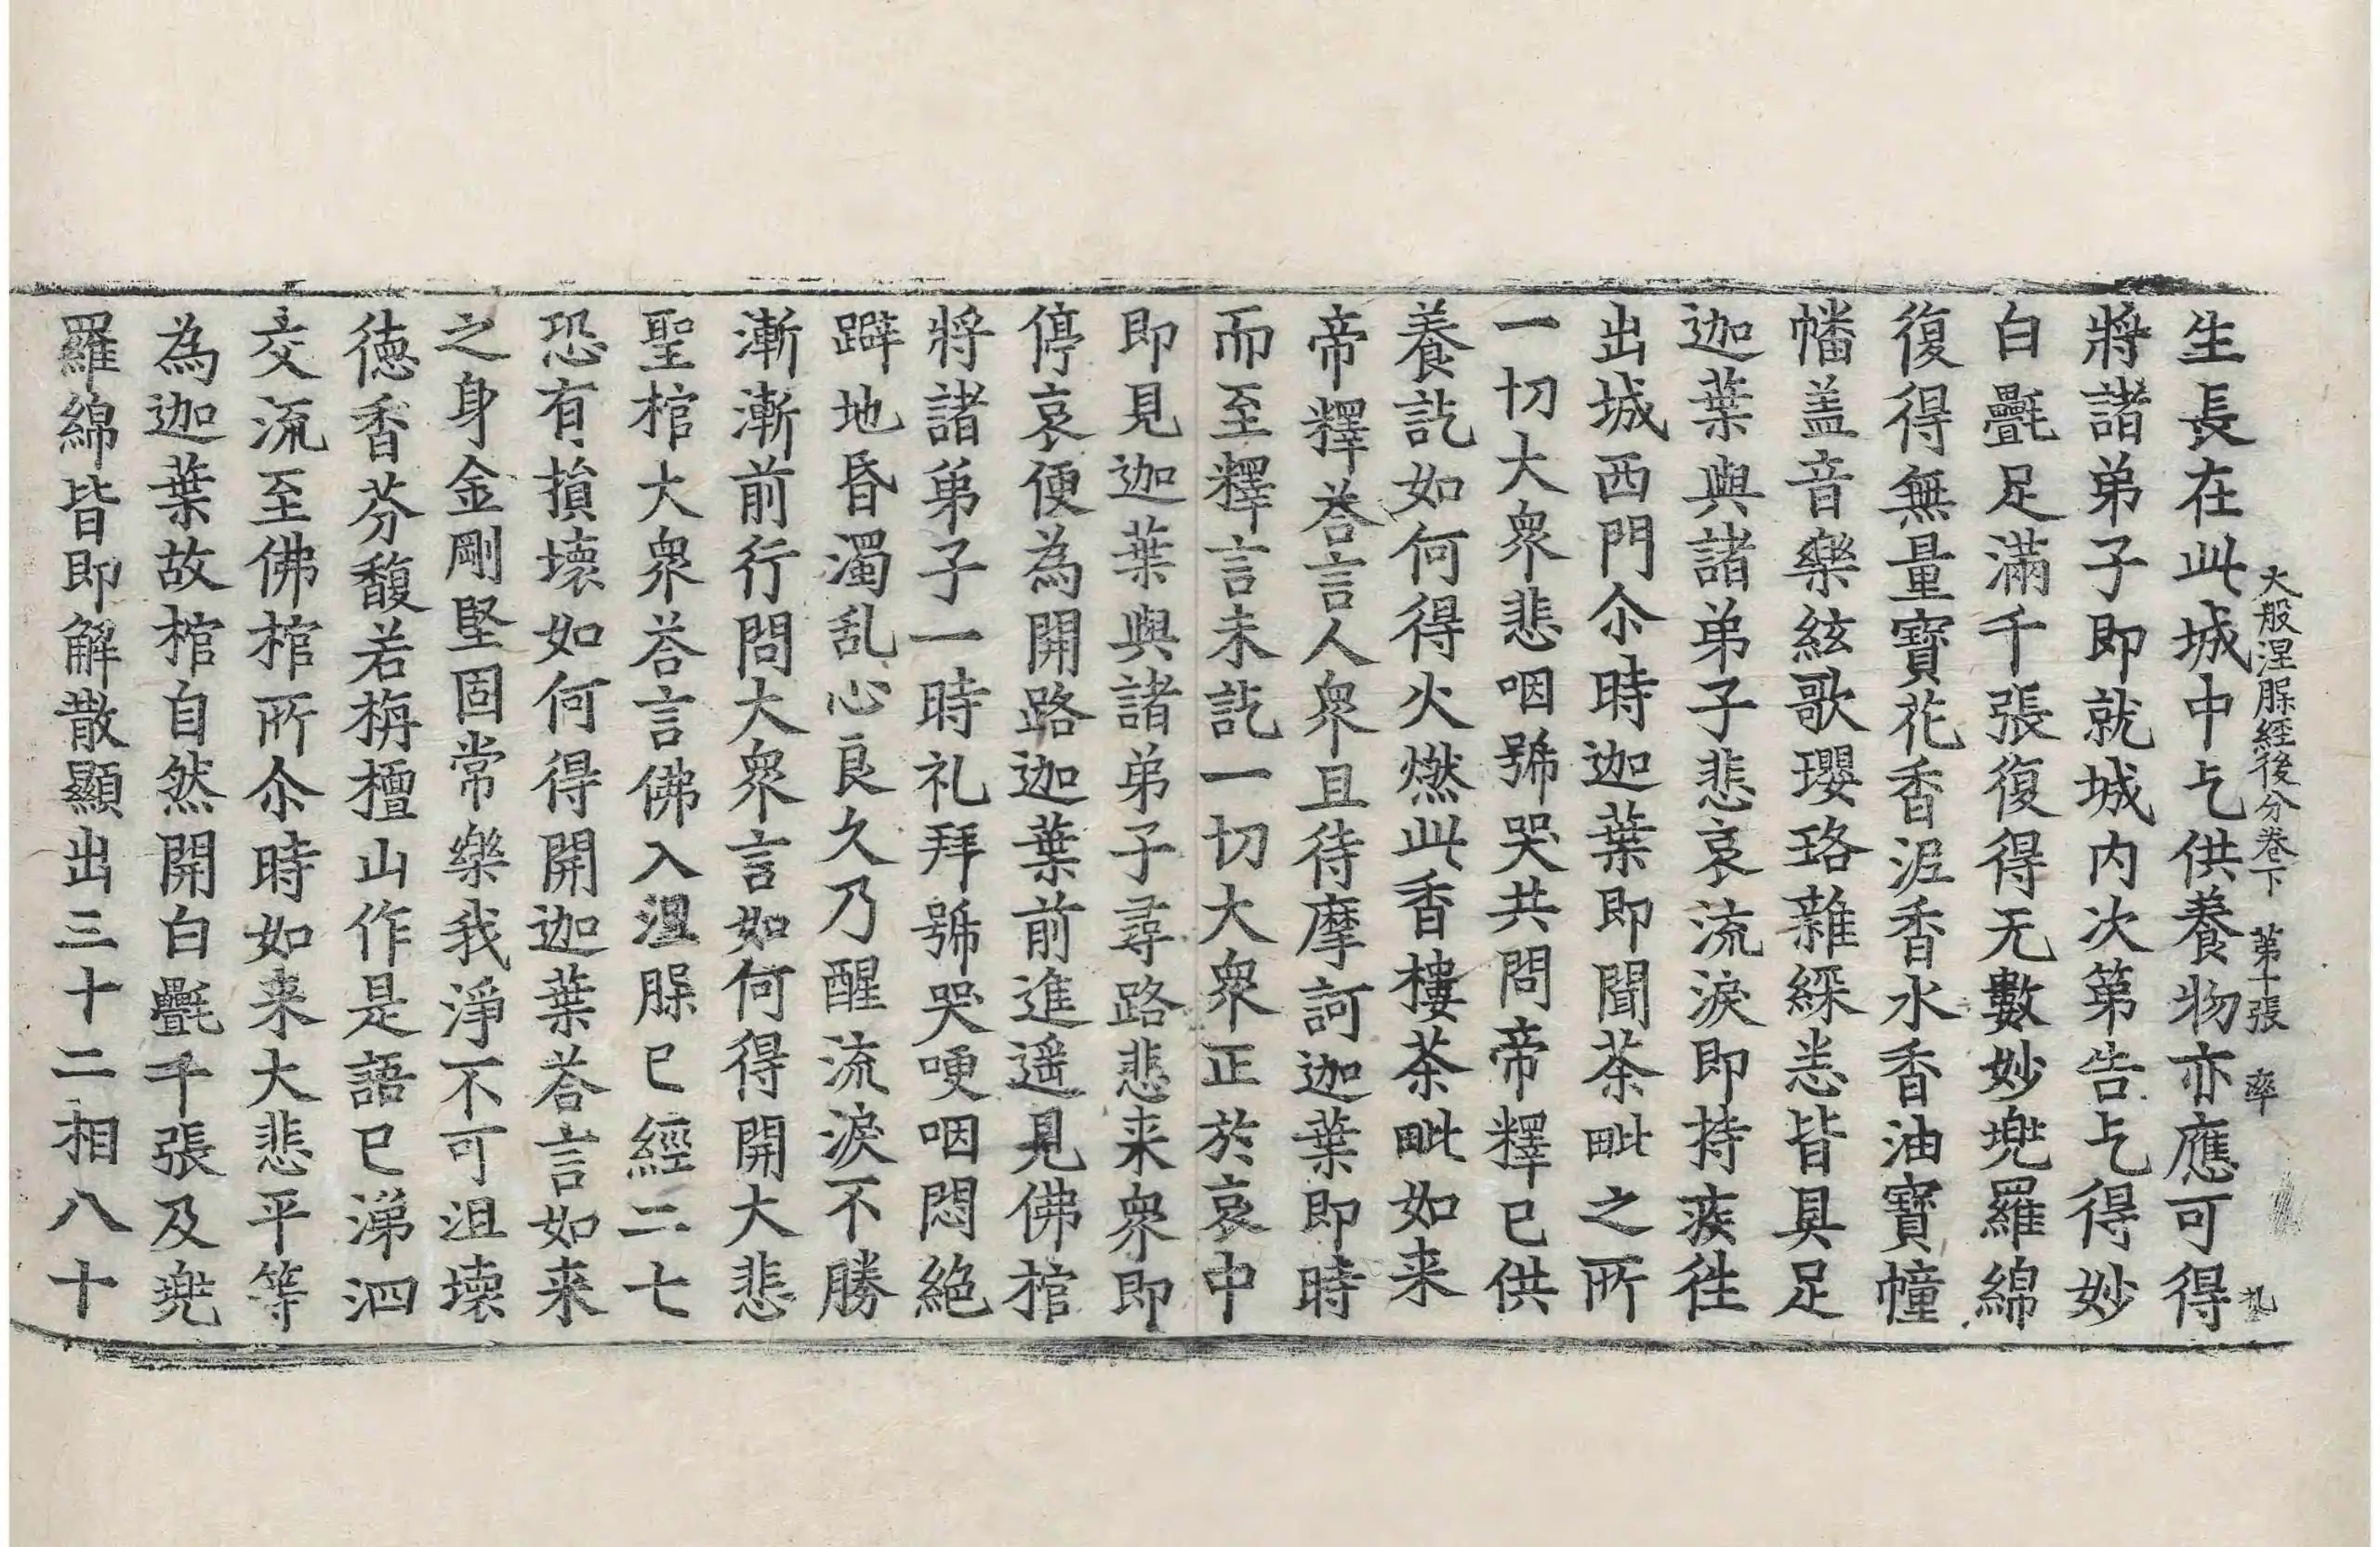 大般涅脲経後分卷下　第十張　率　札
生長在此城中乞供養物亦應可得
將諸弟子即就城内次第告乞得妙
白㲲足滿千張復得无數妙兠羅綿
復得無量寶花香泥香水香油寶幢
幡盖音樂絃歌瓔珞雜綵恙皆具足
迦葉與諸弟子悲哀流淚即持㾮徃
出城西門尒時迦葉即聞茶毗之所
一切大衆悲咽號哭共問帝釋已供
養訖如何得火燃此香樓茶毗如来
帝釋荅言人衆且待摩訶迦葉即時
而至釋言未訖一切大衆正於哀中
即見迦葉與諸弟子尋路悲来衆即
停哀便為開路迦葉前進遥見佛棺
將諸弟子一時礼拜號哭哽咽悶絶
躃地昏濁乱心良久乃醒流淚不勝
漸漸前行問大衆言如何得開大悲
聖棺大衆荅言佛入涅脲已經二七
恐有損壞如何得開迦葉荅言如来
之身金剛堅固常樂我淨不可沮壞
徳香芬馥若栴檀山作是語已涕泗
交流至佛棺所尒時如来大悲平等
為迦葉故棺自然開白㲲千張及兠
羅綿皆即解散顯出三十二相八十